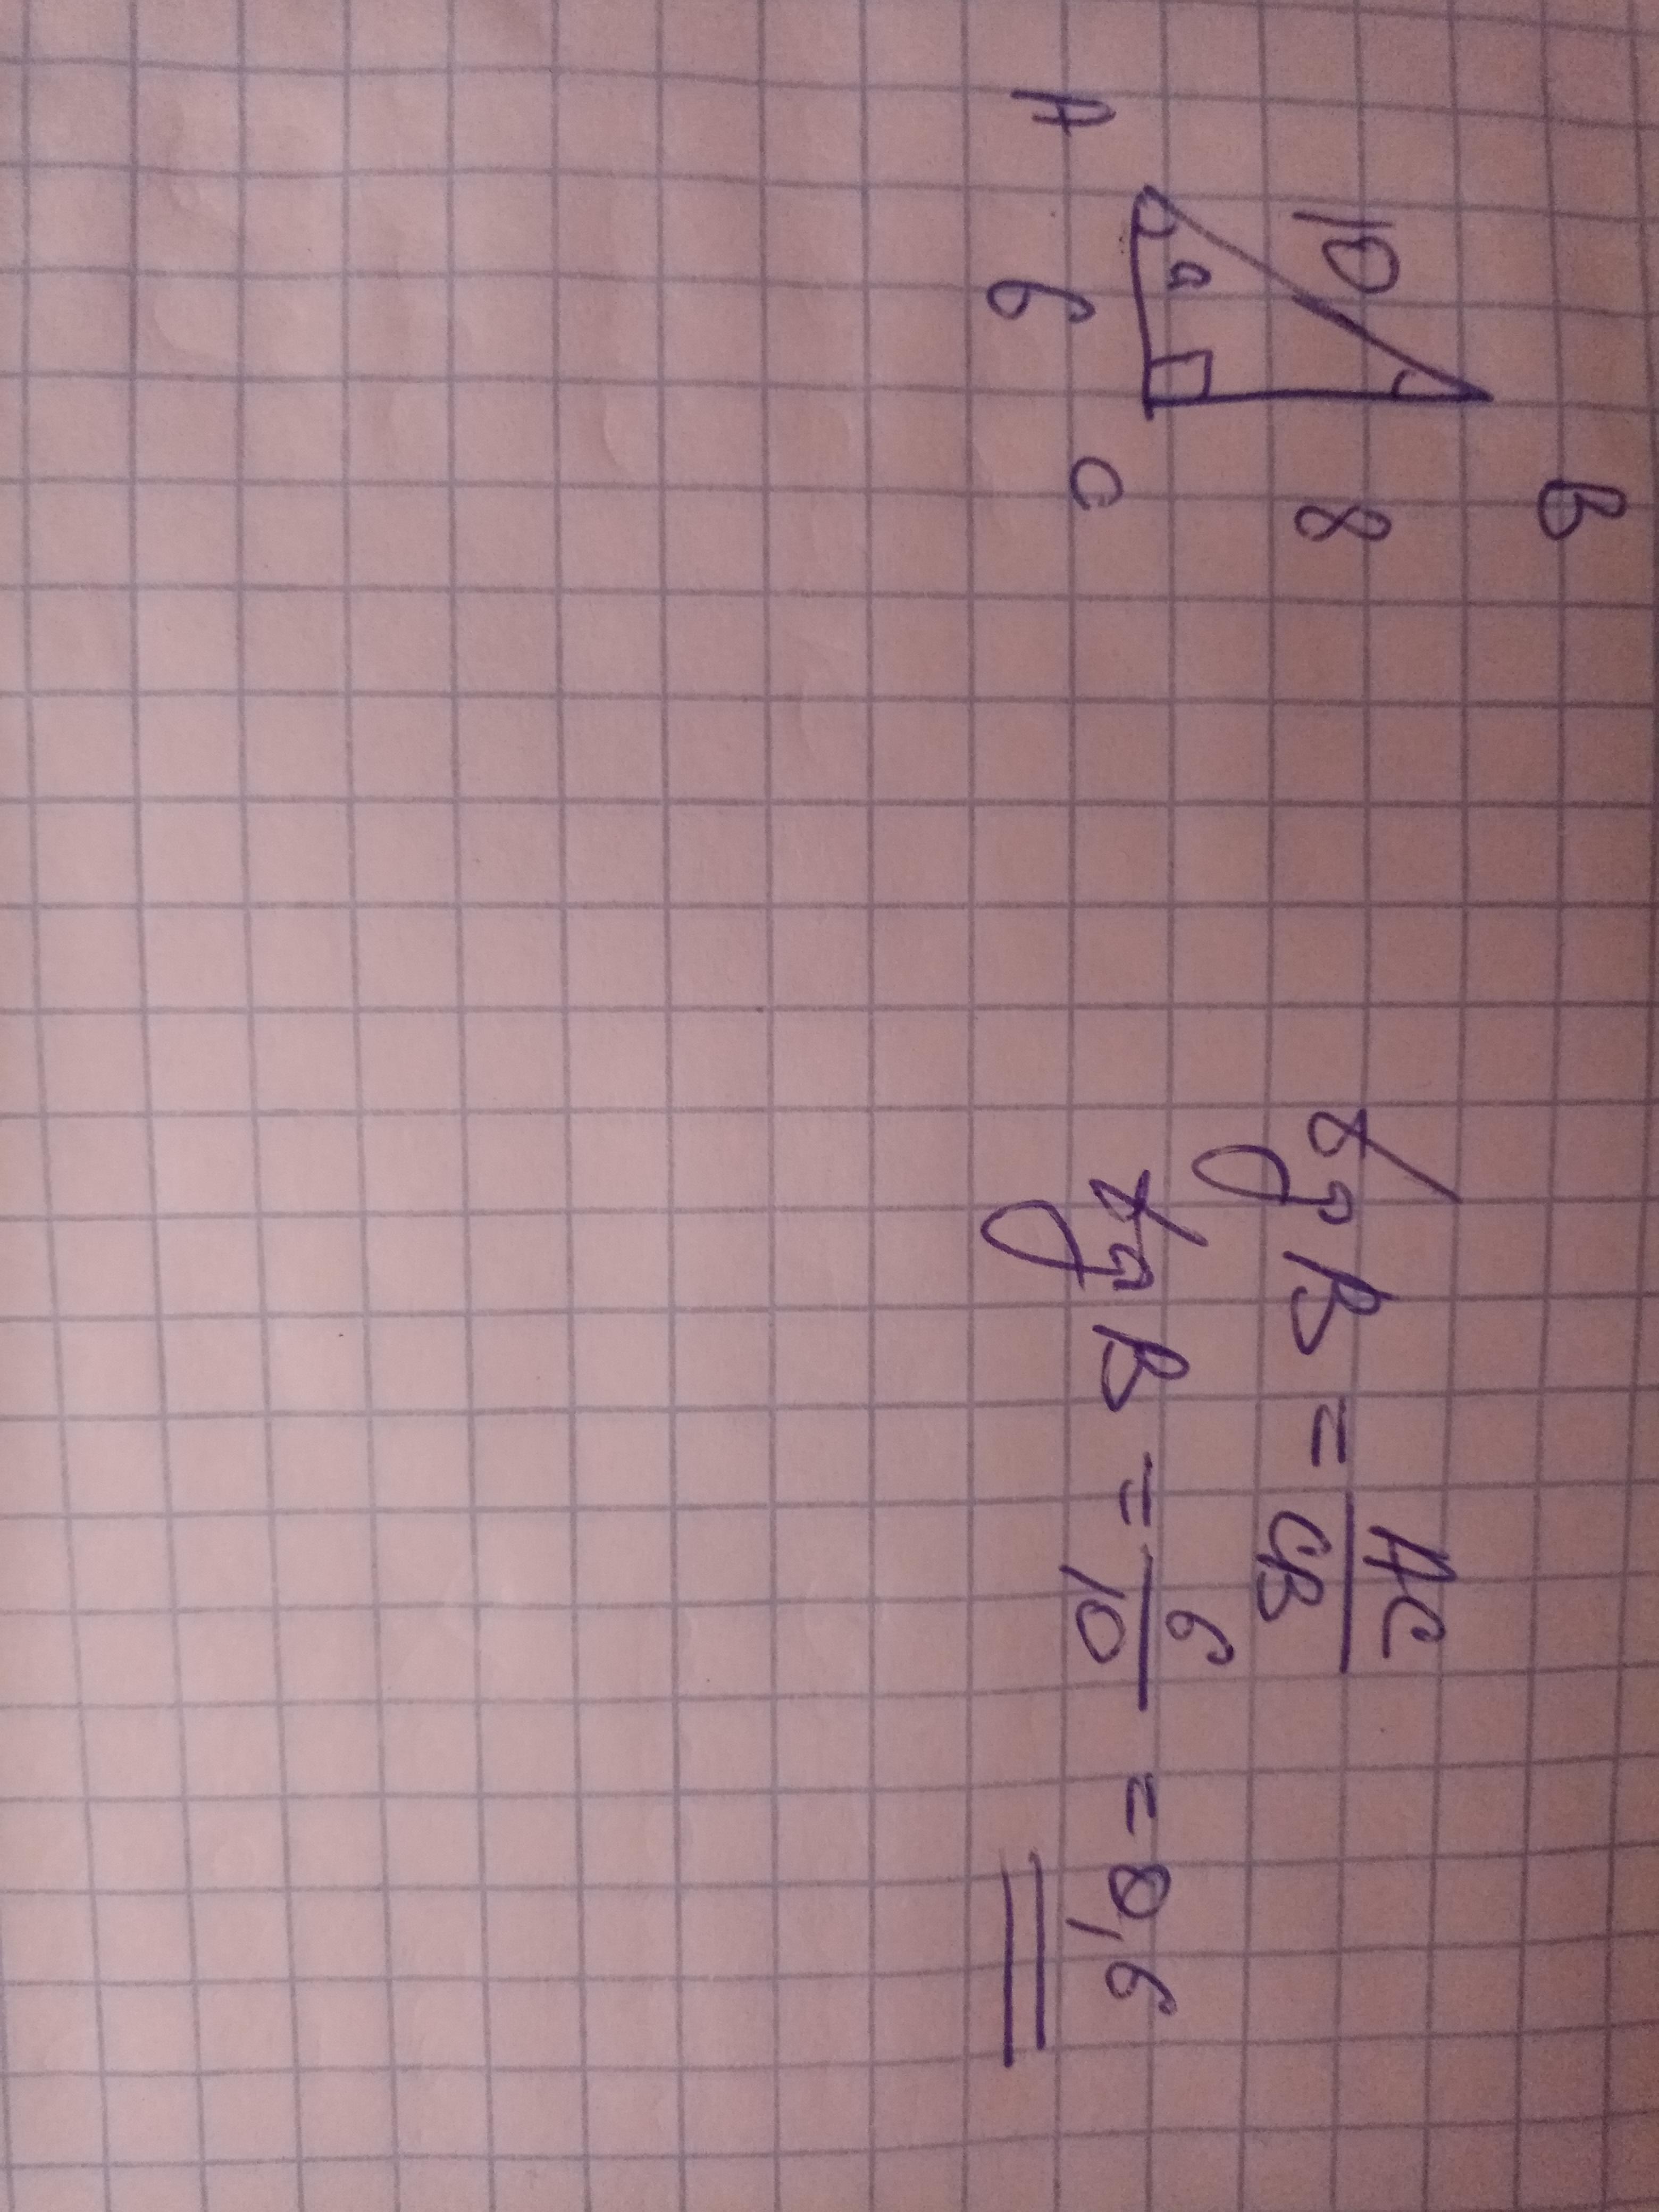 B
10
8
a
A
6
C
tg β = AC/CB
tg β = 6/10 = 0,6